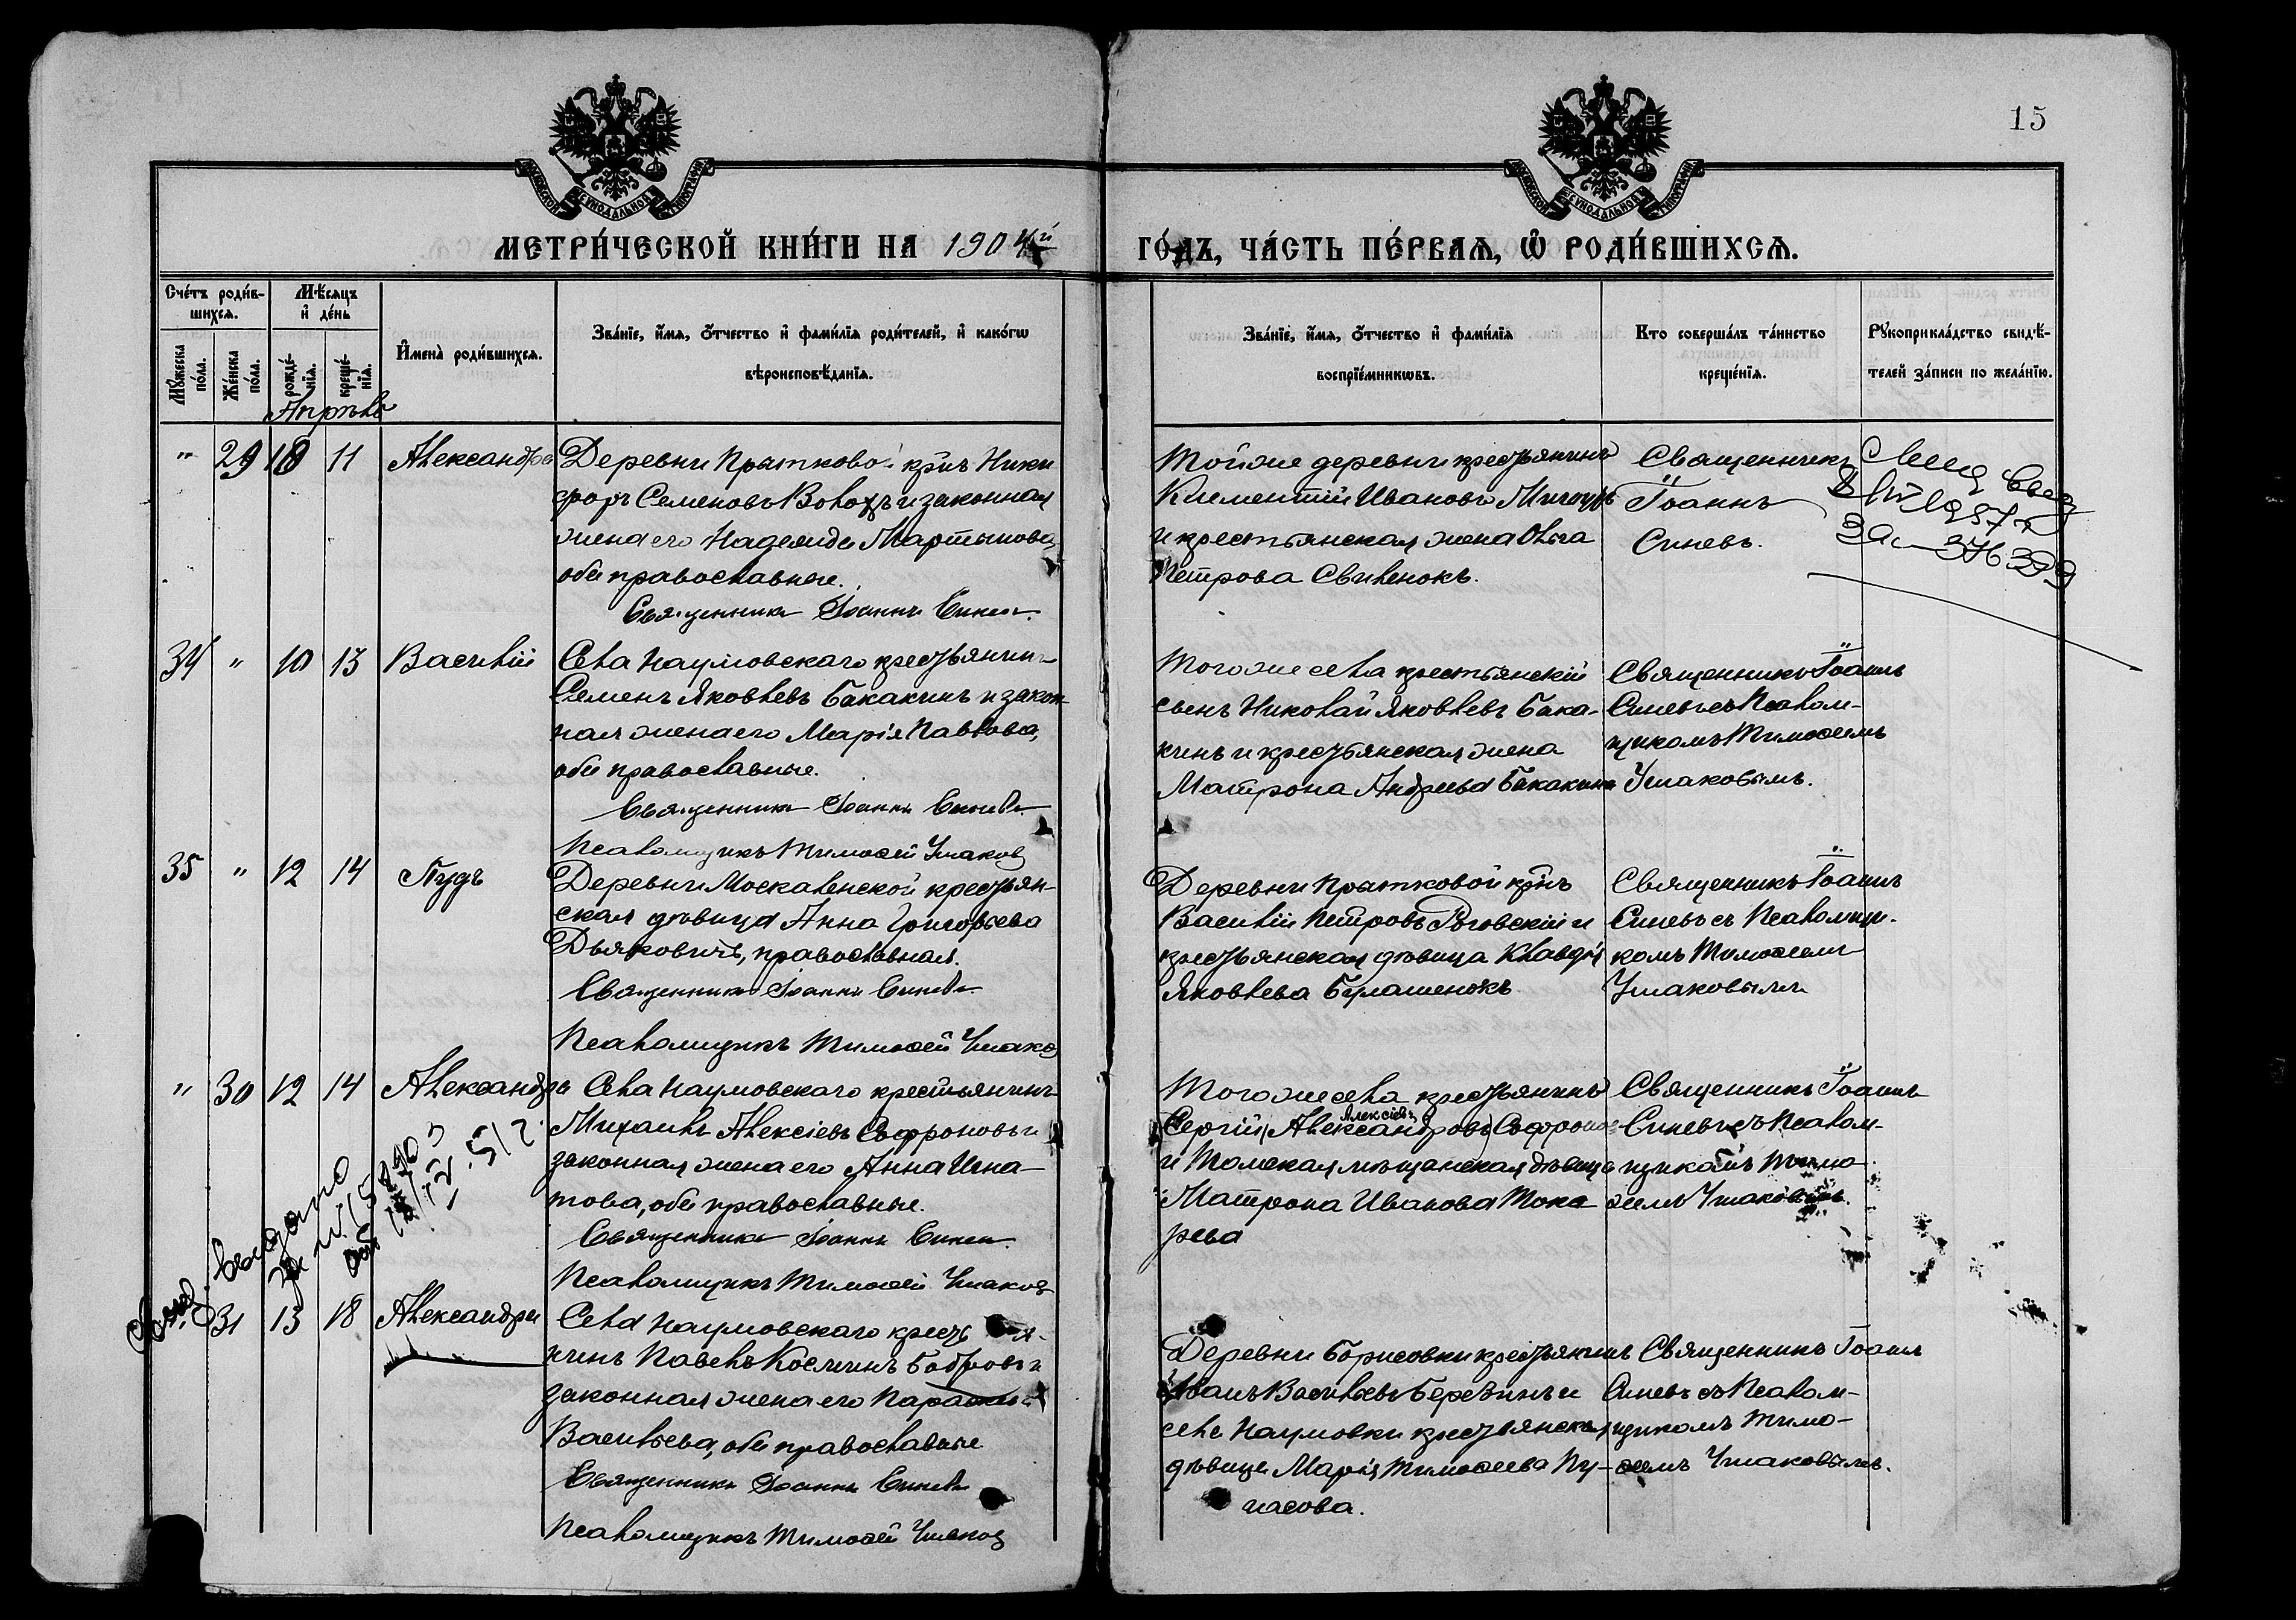 15
МЕТРИ́ЧЕСКОЙ КНИ́ГИ НА 1904й
ГО́ДЪ, ЧА́СТЬ ПЕ́РВАѦ, Ѡ РОДИ́ВШИХСѦ.
Сче́тъ роди́в-
шихся.
Мѣ́сяцъ
и҆ де́нь
Мꙋ́жеска
по́ла.
Же́нска
по́ла.
рожде́-
нїя.
креще́-
нїя.
И҆мена̀ роди́вшихся.
Зва́нїе, и҆́мя, ѻ҆́тчество и҆ фами́лїя роди́телей, и҆ како́гѡ
вѣроисповѣ́данїя.
Зва́нїе, и҆́мя, ѻ҆́тчество и҆ фами́лїя
воспрїе́мникѡвъ.
Кто̀ соверша́лъ та́инство
креще́нїя.
Рꙋкоприкла́дство свидѣ́-
телей за́писи по жела́нїю.
Апрѣль
" 29 10 11 Александра
Деревни Прытковой кр̃нъ Ники
форъ Семеновъ Волохъ и законная
жена его Надежда Мартынова,
оба православные.
Священникъ Іоаннъ Синевъ.
Тойже деревни крестьянинъ
Климентій Ивановъ
и крестьянская жена Ольга
Петрова Свиленокъ.
Священникъ
Іоаннъ
Синевъ.
1957 г
34 " 10 13 Василій
Села Наумовскаго крестьянинъ
Семенъ Яковлевъ Бакакинъ и закон
ная жена его Марія Павлова,
оба православные.
Священникъ Іоаннъ Синевъ
Псаломщикъ Тимоѳей Ушаковъ
Того же села крестьянскій
сынъ Николай Яковлевъ Бака-
кинъ и крестьянская жена
Матрона Андреева Бакакина
Священникъ Іоаннъ
Синевъ съ Псалом-
щикомъ Тимоѳеемъ
Ушаковымъ.
35 " 12 14 Пудъ
Деревни Москалевской крестьян-
ская дѣвица Анна Григорьева
Дьяковичъ, православная.
Священникъ Іоаннъ Синевъ
Псаломщикъ Тимоѳей Ушаковъ
Деревни Прытковой кр̃нъ
Василій Петровъ Роговскій и
крестьянская дѣвица Клавдія
Яковлева Булашенокъ
Священникъ Іоаннъ
Синевъ съ Псаломщи-
комъ Тимоѳеемъ
Ушаковымъ
" 30 12 14 Александра
Села Наумовскаго крестьянинъ
Михаилъ Алексіевъ Софроновъ и
законная жена его Анна Игна-
това, оба православные.
Священникъ Іоаннъ Синевъ.
Псаломщикъ Тимоѳей Ушаковъ
Того же села крестьянинъ
Алексіевъ
Сергій (Александровъ) Софроновъ
и Томская мѣщанская дѣвица
Матрона Иванова Тока
рева
Священникъ Іоаннъ
Синевъ съ Псалом-
щикомъ Тимо
ѳеемъ Ушаковымъ.
выдано
31 13 18 Александра
Села Наумовскаго крестья-
нинъ Павелъ Косминъ Бобровъ и
законная жена его
Васильева, оба православные
Священникъ Іоаннъ Синевъ
Псаломщикъ Тимоѳей Ушаковъ
Деревни Борисовки крестьянинъ
Иванъ Васильевъ Березинъ и
села Наумовки крестьянская
дѣвица Марія Тимоѳеева Пу-
гасова.
Священникъ Іоаннъ
Синевъ съ Псалом-
щикомъ Тимо-
ѳеемъ Ушаковымъ.